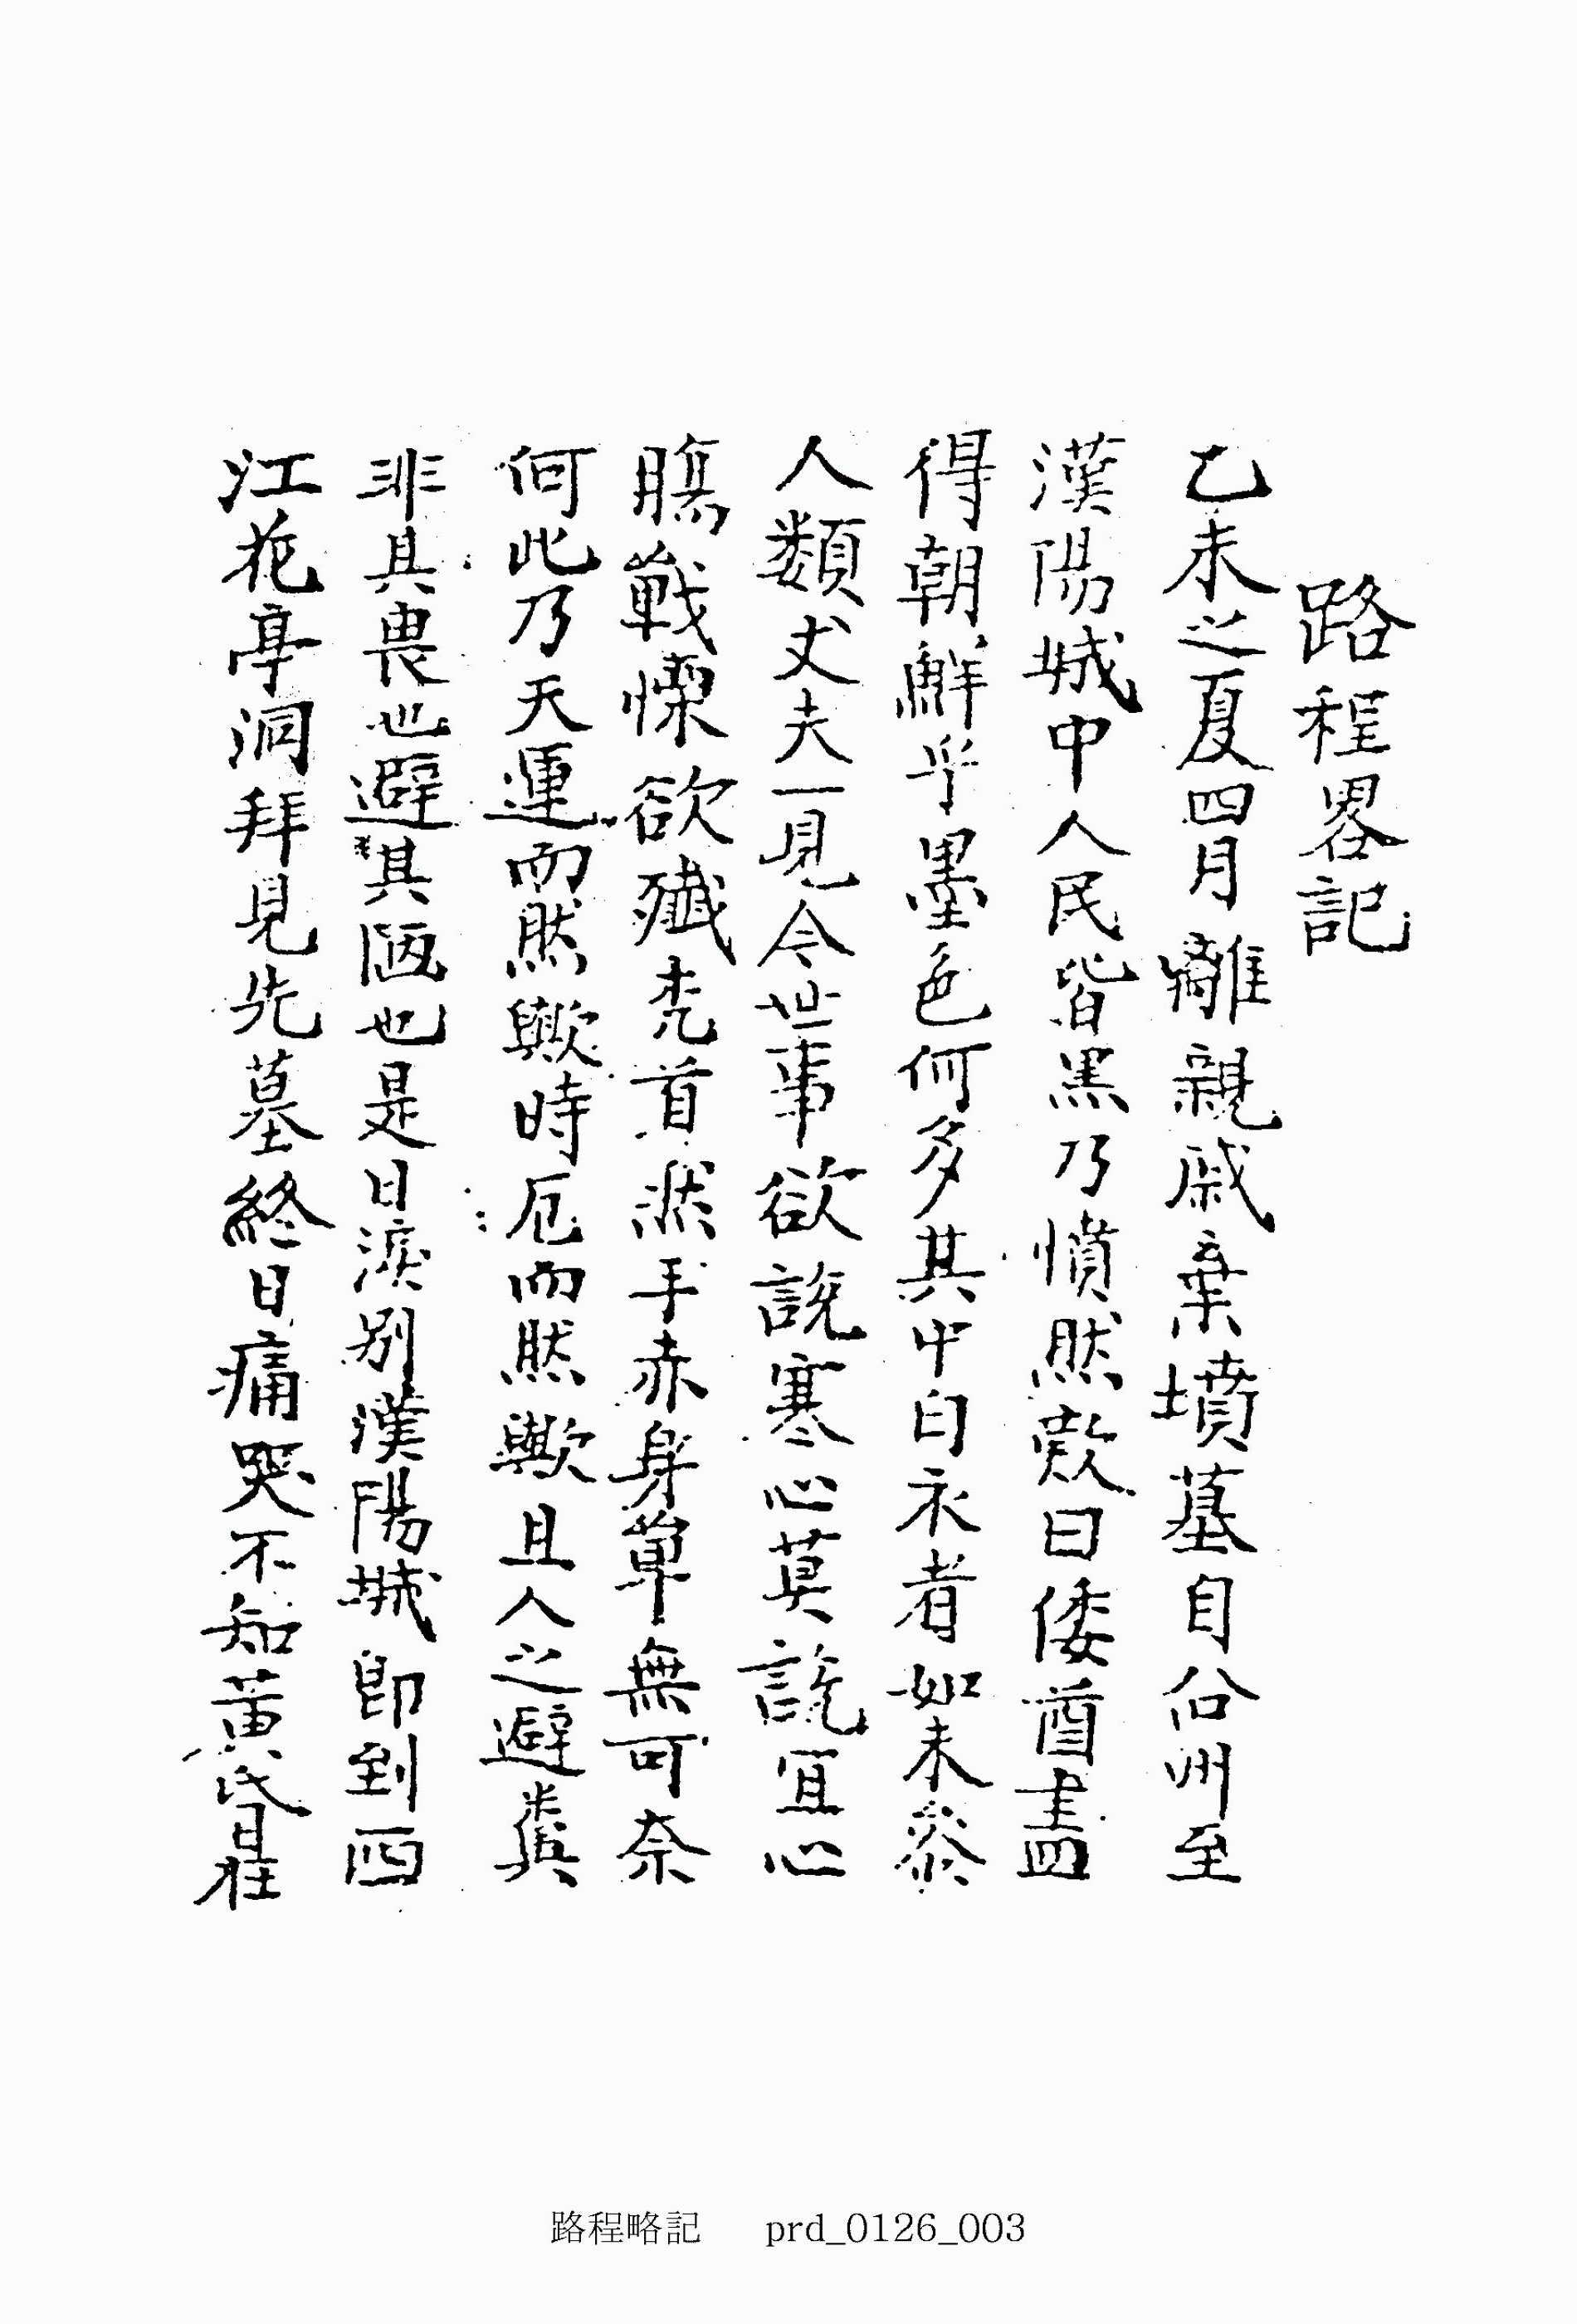 路程畧記
乙未之夏四月離親戚棄墳墓自公州至
漢陽城中人民皆黑乃憤然歎曰倭酋盡
得朝鮮乎墨色何多其中白衣者如未參
人類丈夫一見今世事欲說寒心莫說宜心
膓戰慄欲殲禿首然手赤身單無可奈
何此乃天運而然歟時厄而然歟且人之避糞
非其畏也避其陋也是日淚別漢陽城即到西
江花亭洞拜見先墓終日痛哭不知黃昏日在
路程略記 prd_0126_003